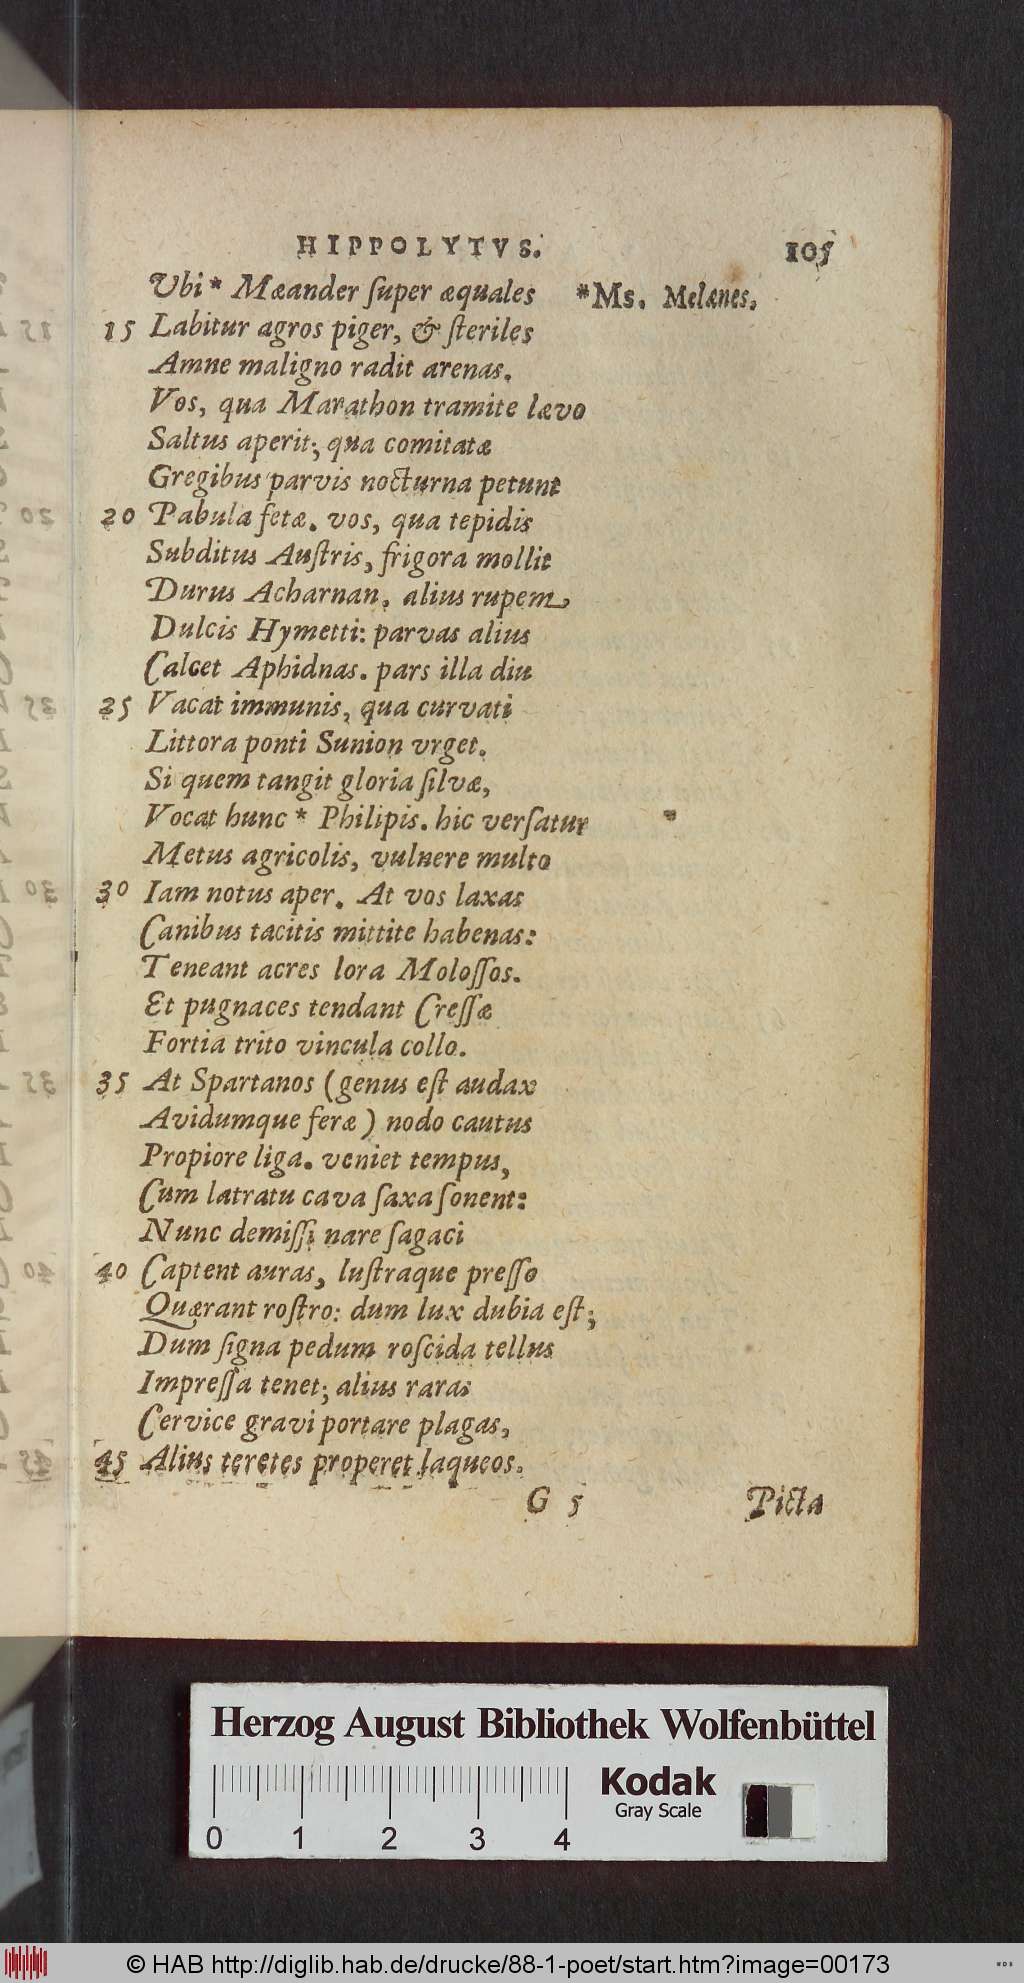 HIPPOLYTVS. 105
Vbi * Mæander ſuper æquales *Ms. Melænes.
15 Labitur agros piger, & ſteriles
Amne maligno radit arenas.
Vos, qua Marathon tramite lævo
Saltus aperit; qua comitatæ
Gregibus parvis nocturna petunt
20 Pabula fetæ. vos, qua tepidis
Subditus Auſtris, frigora mollit
Durus Acharnan. alius rupem
Dulcis Hymetti: parvas alius
Calcet Aphidnas. pars illa diu
25 Vacat immunis, qua curvati
Littora ponti Sunion vrget.
Si quem tangit gloria ſilvæ,
Vocat hunc * Philipis. hic verſatur
Metus agricolis, vulnere multo
30 Iam notus aper. At vos laxas
Canibus tacitis mittite habenas:
Teneant acres lora Moloſſos.
Et pugnaces tendant Creſſæ
Fortia trito vincula collo.
35 At Spartanos (genus eſt audax
Avidumque feræ) nodo cautus
Propiore liga. veniet tempus,
Cum latratu cava ſaxa ſonent:
Nunc demiſſi nare ſagaci
40 Captent auras, luſtraque preſſo
Quærant roſtro: dum lux dubia eſt;
Dum ſigna pedum roſcida tellus
Impreſſa tenet; alius raras
Cervice gravi portare plagas,
45 Alius teretes properet laqueos.
G 5 Picta
Herzog August Bibliothek Wolfenbüttel
Kodak
Gray Scale
0 1 2 3 4
© HAB http://diglib.hab.de/drucke/88-1-poet/start.htm?image=00173